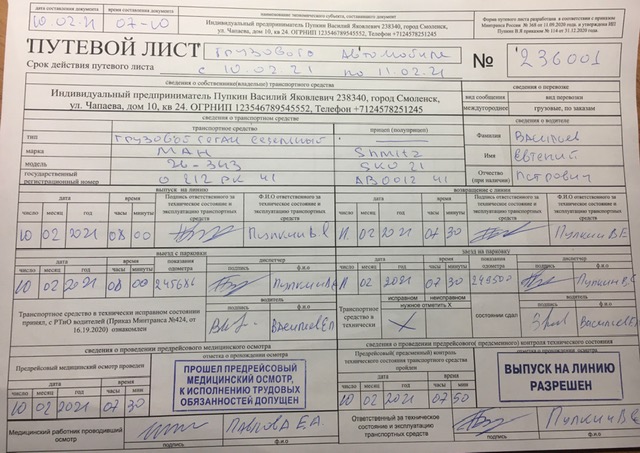 дата составления документа
время составления документа
наименование экономического субъекта, составившего документ
10.02.21 07-10
Индивидуальный предприниматель Пупкин Василий Яковлевич 238340, город Смоленск,
ул. Чапаева, дом 10, кв 24. ОГРНИП 123546789545552, Телефон +7124578251245
Форма путевого листа разработана в соответствии с приказом
Минтранса России № 368 от 11.09.2020 г. и утверждена ИП
Пупкин В.Я приказом № 114 от 31.12.2020 г.
ПУТЕВОЙ ЛИСТ Грузового автомобиля № 236001
Срок действия путевого листа с 10.02.21 по 11.02.21
сведения о собственнике(владельце) транспортного средства
сведения о перевозке
Индивидуальный предприниматель Пупкин Василий Яковлевич 238340, город Смоленск,
ул. Чапаева, дом 10, кв 24. ОГРНИП 123546789545552, Телефон +7124578251245
вид сообщения вид перевозки
междугороднее грузовые, по заказам
сведения о транспортном средстве
сведения о водителе
транспортное средство прицеп (полуприцеп)
тип Грузовой тягач седельный
Фамилия Васильев
марка МАН Shmitz
Имя Евгений
модель 26-343 SKO 21
Отчество (при наличии) Петрович
государственный регистрационный номер О 212 РК 41 АВ0012 41
выпуск на линию возвращение с линии
дата время Подпись ответственного за техническое состояние и эксплуатацию транспортных средств Ф.И.О ответственного за техническое состояние и эксплуатацию транспортных средств
дата время Подпись ответственного за техническое состояние и эксплуатацию транспортных средств Ф.И.О ответственного за техническое состояние и эксплуатацию транспортных средств
число месяц год часы минуты
число месяц год часы минуты
10 02 2021 08 00 Пупкин В.Я
11. 02 2021 07 30 Пупкин В.Е
выезд с парковки заезд на парковку
дата время показания одометра диспетчер
дата время показания одометра диспетчер
число месяц год часы минуты подпись ф.и.о
число месяц год часы минуты подпись ф.и.о
10 02 2021 08 00 Пупкин В.Е
02 2021 07 30 249500 Пупкин В.Е
водитель водитель
Транспортное средство в технически исправном состоянии
принял, с РТиО водителей (Приказ Минтранса №424, от
16.19.2020) ознакомлен
подпись ф.и.о
Васильев Е.П
Транспортное средство в технически
исправном неисправном
нужное отметить Х
X
состоянии сдал
подпись ф.и.о
Васильев Е.П
сведения о прохождении предрейсового медицинского осмотра
сведения о прохождении предрейсового (предсменного) контроля технического состояния
Предрейсовый медицинский осмотр проведен
отметка о прохождении осмотра
Предрейсовый( предсменный) контроль
технического состояния транспортного средства
пройден
отметка о прохождении контроля
дата время
число месяц год часы мин
10 02 2021 07 30
ПРОШЕЛ ПРЕДРЕЙСОВЫЙ
МЕДИЦИНСКИЙ ОСМОТР,
К ИСПОЛНЕНИЮ ТРУДОВЫХ
ОБЯЗАННОСТЕЙ ДОПУЩЕН
дата время
число месяц год часы мин
10 02 2021 07 50
ВЫПУСК НА ЛИНИЮ
РАЗРЕШЕН
Медицинский работник проводивший осмотр
Павлова Е.А.
подпись ф.и.о
Ответственный за техническое состояние и эксплуатацию транспортных средств
Пупкин В.Е
подпись ф.и.о